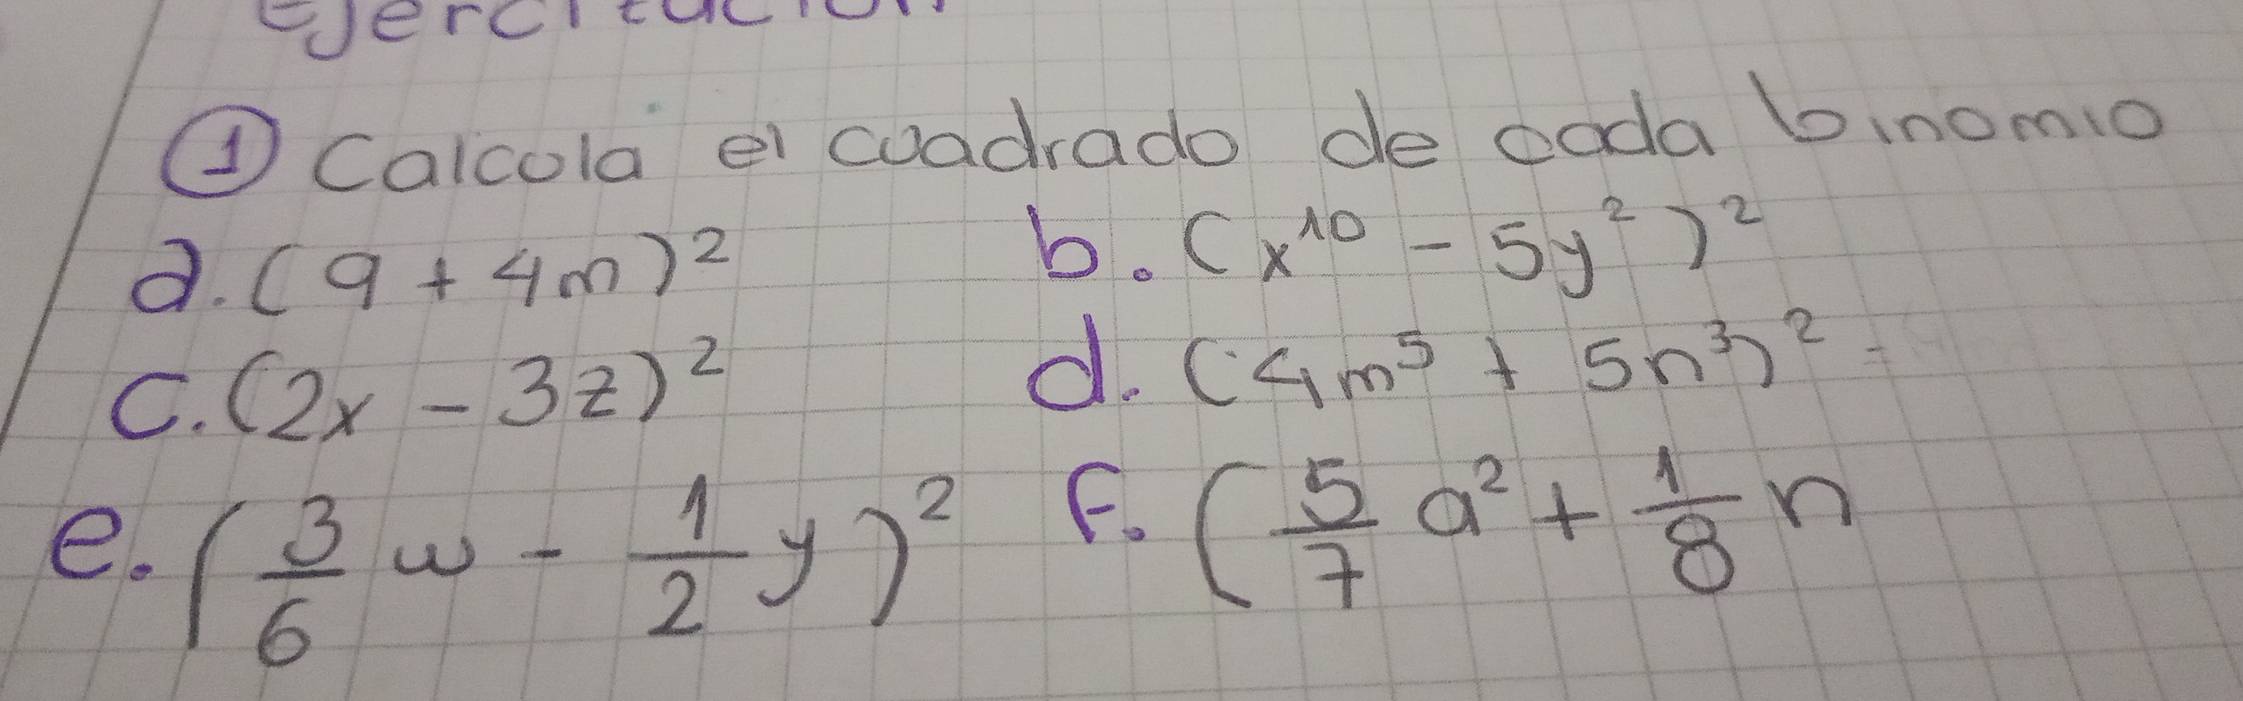 Ejercitación
① Calcola el cuadrado de cada binomio
a. (9 + 4m)² b. (x¹⁰ - 5y²)²
c. (2x - 3z)² d. (4m⁵ + 5n³)²
e. (3/6 w - 1/2 y)² F. (5/7 a² + 1/8 n